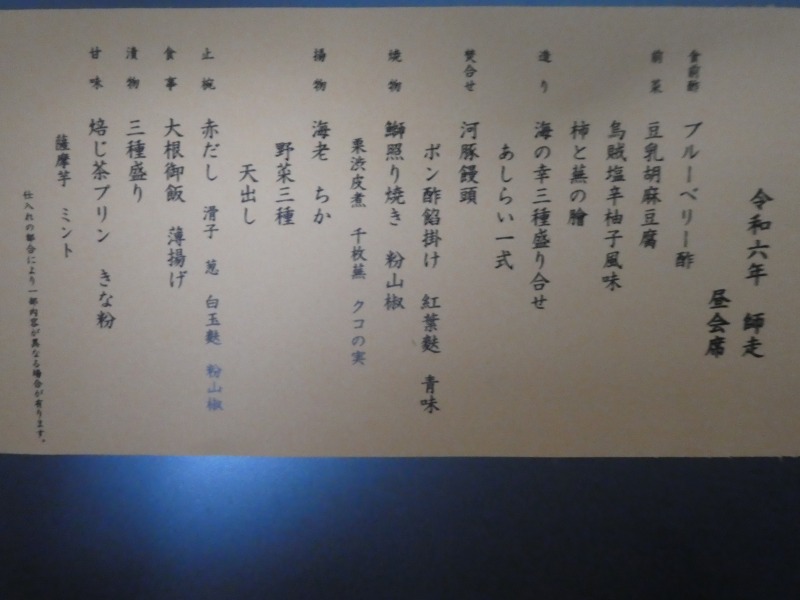 令和六年 師走
昼会席
食前酢 ブルーベリー酢
前菜 豆乳胡麻豆腐
烏賊塩辛柚子風味
柿と蕪の膾
造り 海の幸三種盛り合せ
あしらい一式
焚合せ 河豚饅頭
ポン酢餡掛け 紅葉麩 青味
焼物 鰤照り焼き 粉山椒
栗渋皮煮 千枚蕪 クコの実
揚物 海老 ちか
野菜三種
天出し
止椀 赤だし 滑子 葱 白玉麩 粉山椒
食事 大根御飯 薄揚げ
漬物 三種盛り
甘味 焙じ茶プリン きな粉
薩摩芋 ミント
仕入れの都合により一部内容が異なる場合が有ります。